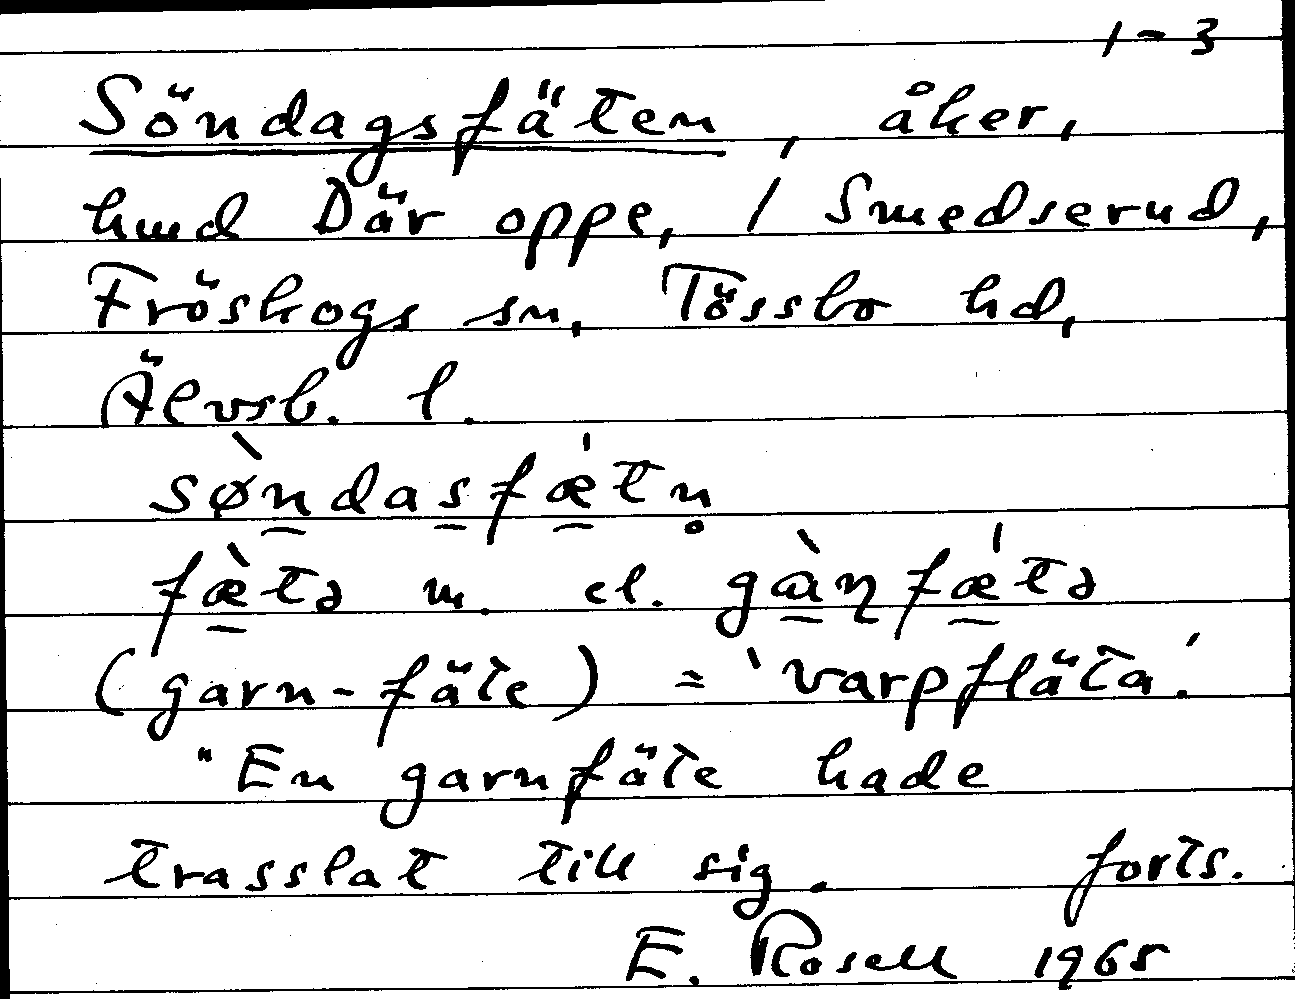 1-3
Söndagsfäten, åker,
hmd Där oppe, i Smedserud,
Fröskogs sn, Tössbo hd,
Älvsb. l.
sø̀ndasfǽtn̥
fæ̀tə m. el. gàɳfǽtə
(garn-fäte) = 'varpfläta'.
"En garnfäte hade
trasslat till sig. forts.
E. Rosell 1965